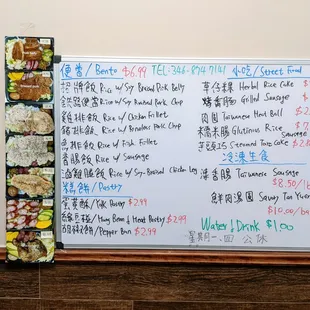 便當 / Bento $6.99 TEL: 346-874-7141
Rice w/ Soy Braised Pork Belly
Rice w/ Soy Braised Pork Chop
Rice w/ Chicken Fillet
Rice w/ Boneless Pork Chop
Rice w/ Fish Fillet
香腸飯 Rice w/ Sausage
Rice w/ Soy-Braised Chicken Leg
/ Pastry
蛋黃酥 / Yolk Pastry $2.99
/ Mung Bean & Meat Pastry $2.99
胡椒餅 / Pepper Bun $2.99
小吃 / Street Food
草仔粿 Herbal Rice Cake $
烤香腸 Grilled Sausage $
肉圓 Taiwanese Meat Ball $2
Glutinous Rice Sausage $
芋頭巧 Steamed Taro Cake $2
冷凍生食
Taiwanese Sausage $8.50/lb
鮮肉湯圓 Savory Tan Yuen $10.00/
Water & Drink $1.00
星期一、四 公休